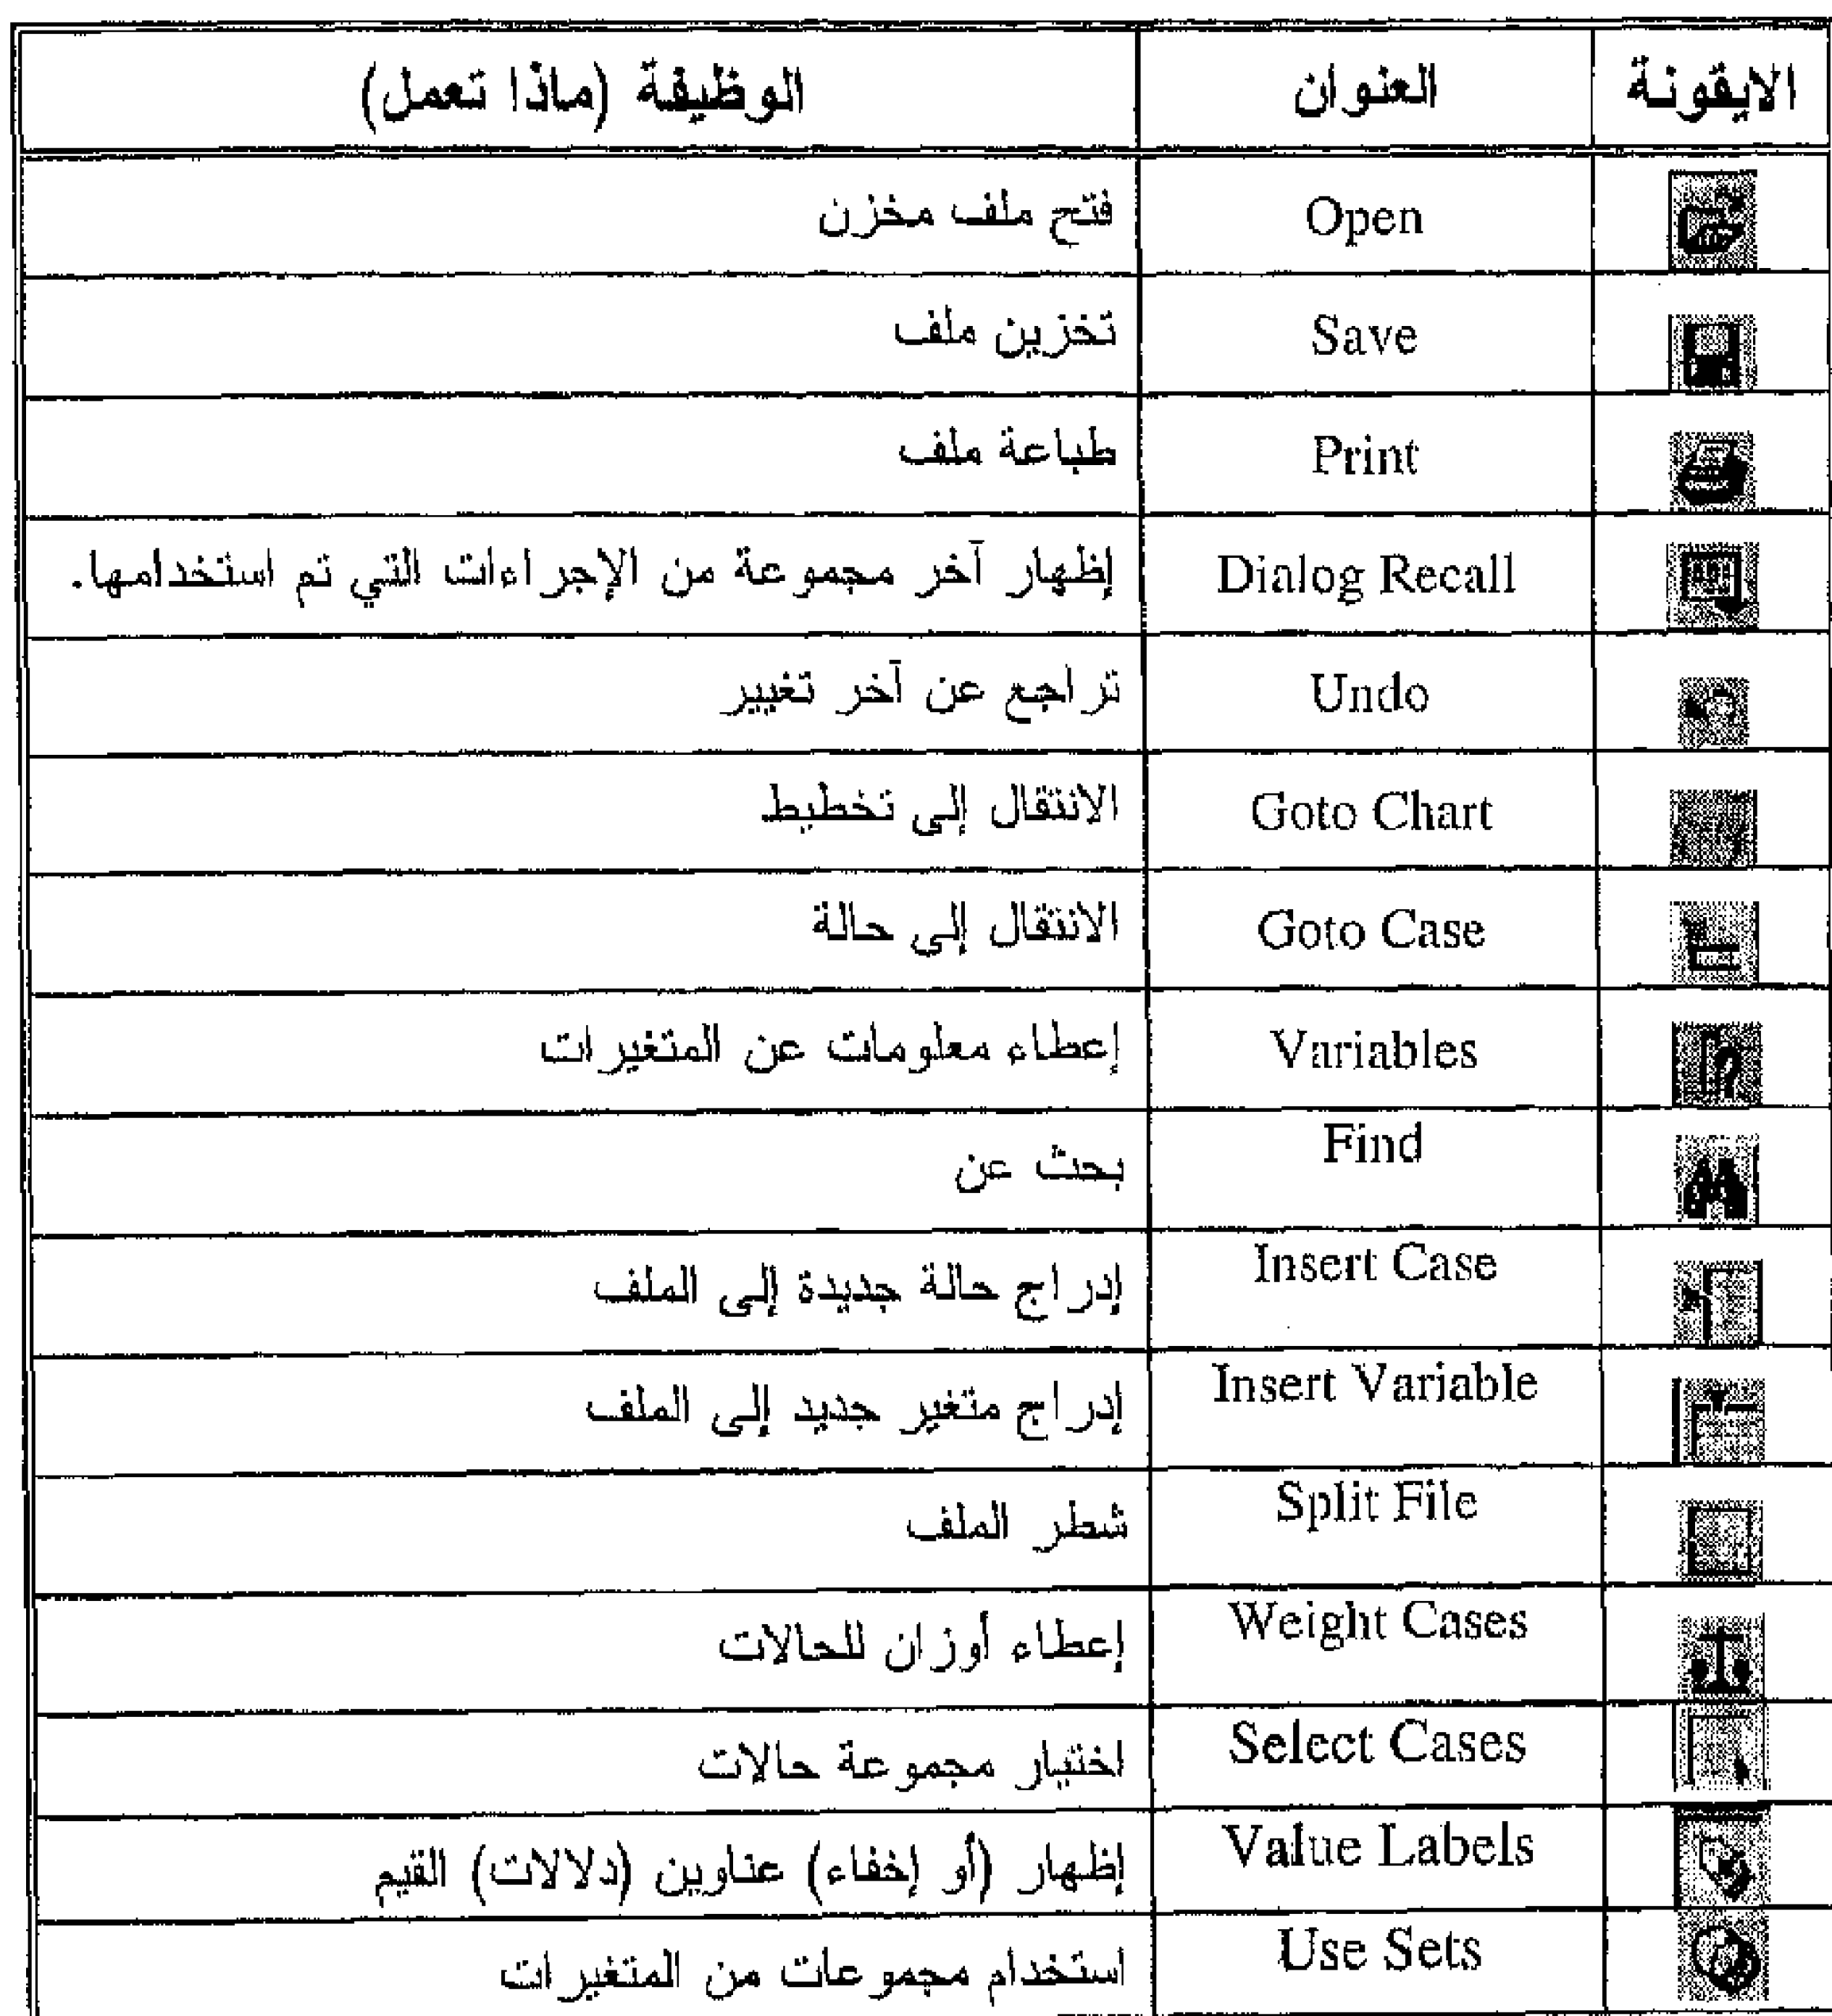 الايقونة العنوان الوظيفة (ماذا تعمل)
Open فتح ملف مخزن
Save تخزين ملف
Print طباعة ملف
Dialog Recall إظهار آخر مجموعة من الإجراءات التي تم استخدامها.
Undo تراجع عن آخر تغيير
Goto Chart الانتقال إلى تخطيط
Goto Case الانتقال إلى حالة
Variables إعطاء معلومات عن المتغيرات
Find بحث عن
Insert Case إدراج حالة جديدة إلى الملف
Insert Variable إدراج متغير جديد إلى الملف
Split File شطر الملف
Weight Cases إعطاء أوزان للحالات
Select Cases اختيار مجموعة حالات
Value Labels إظهار (أو إخفاء) عناوين (دلالات) القيم
Use Sets استخدام مجموعات من المتغيرات